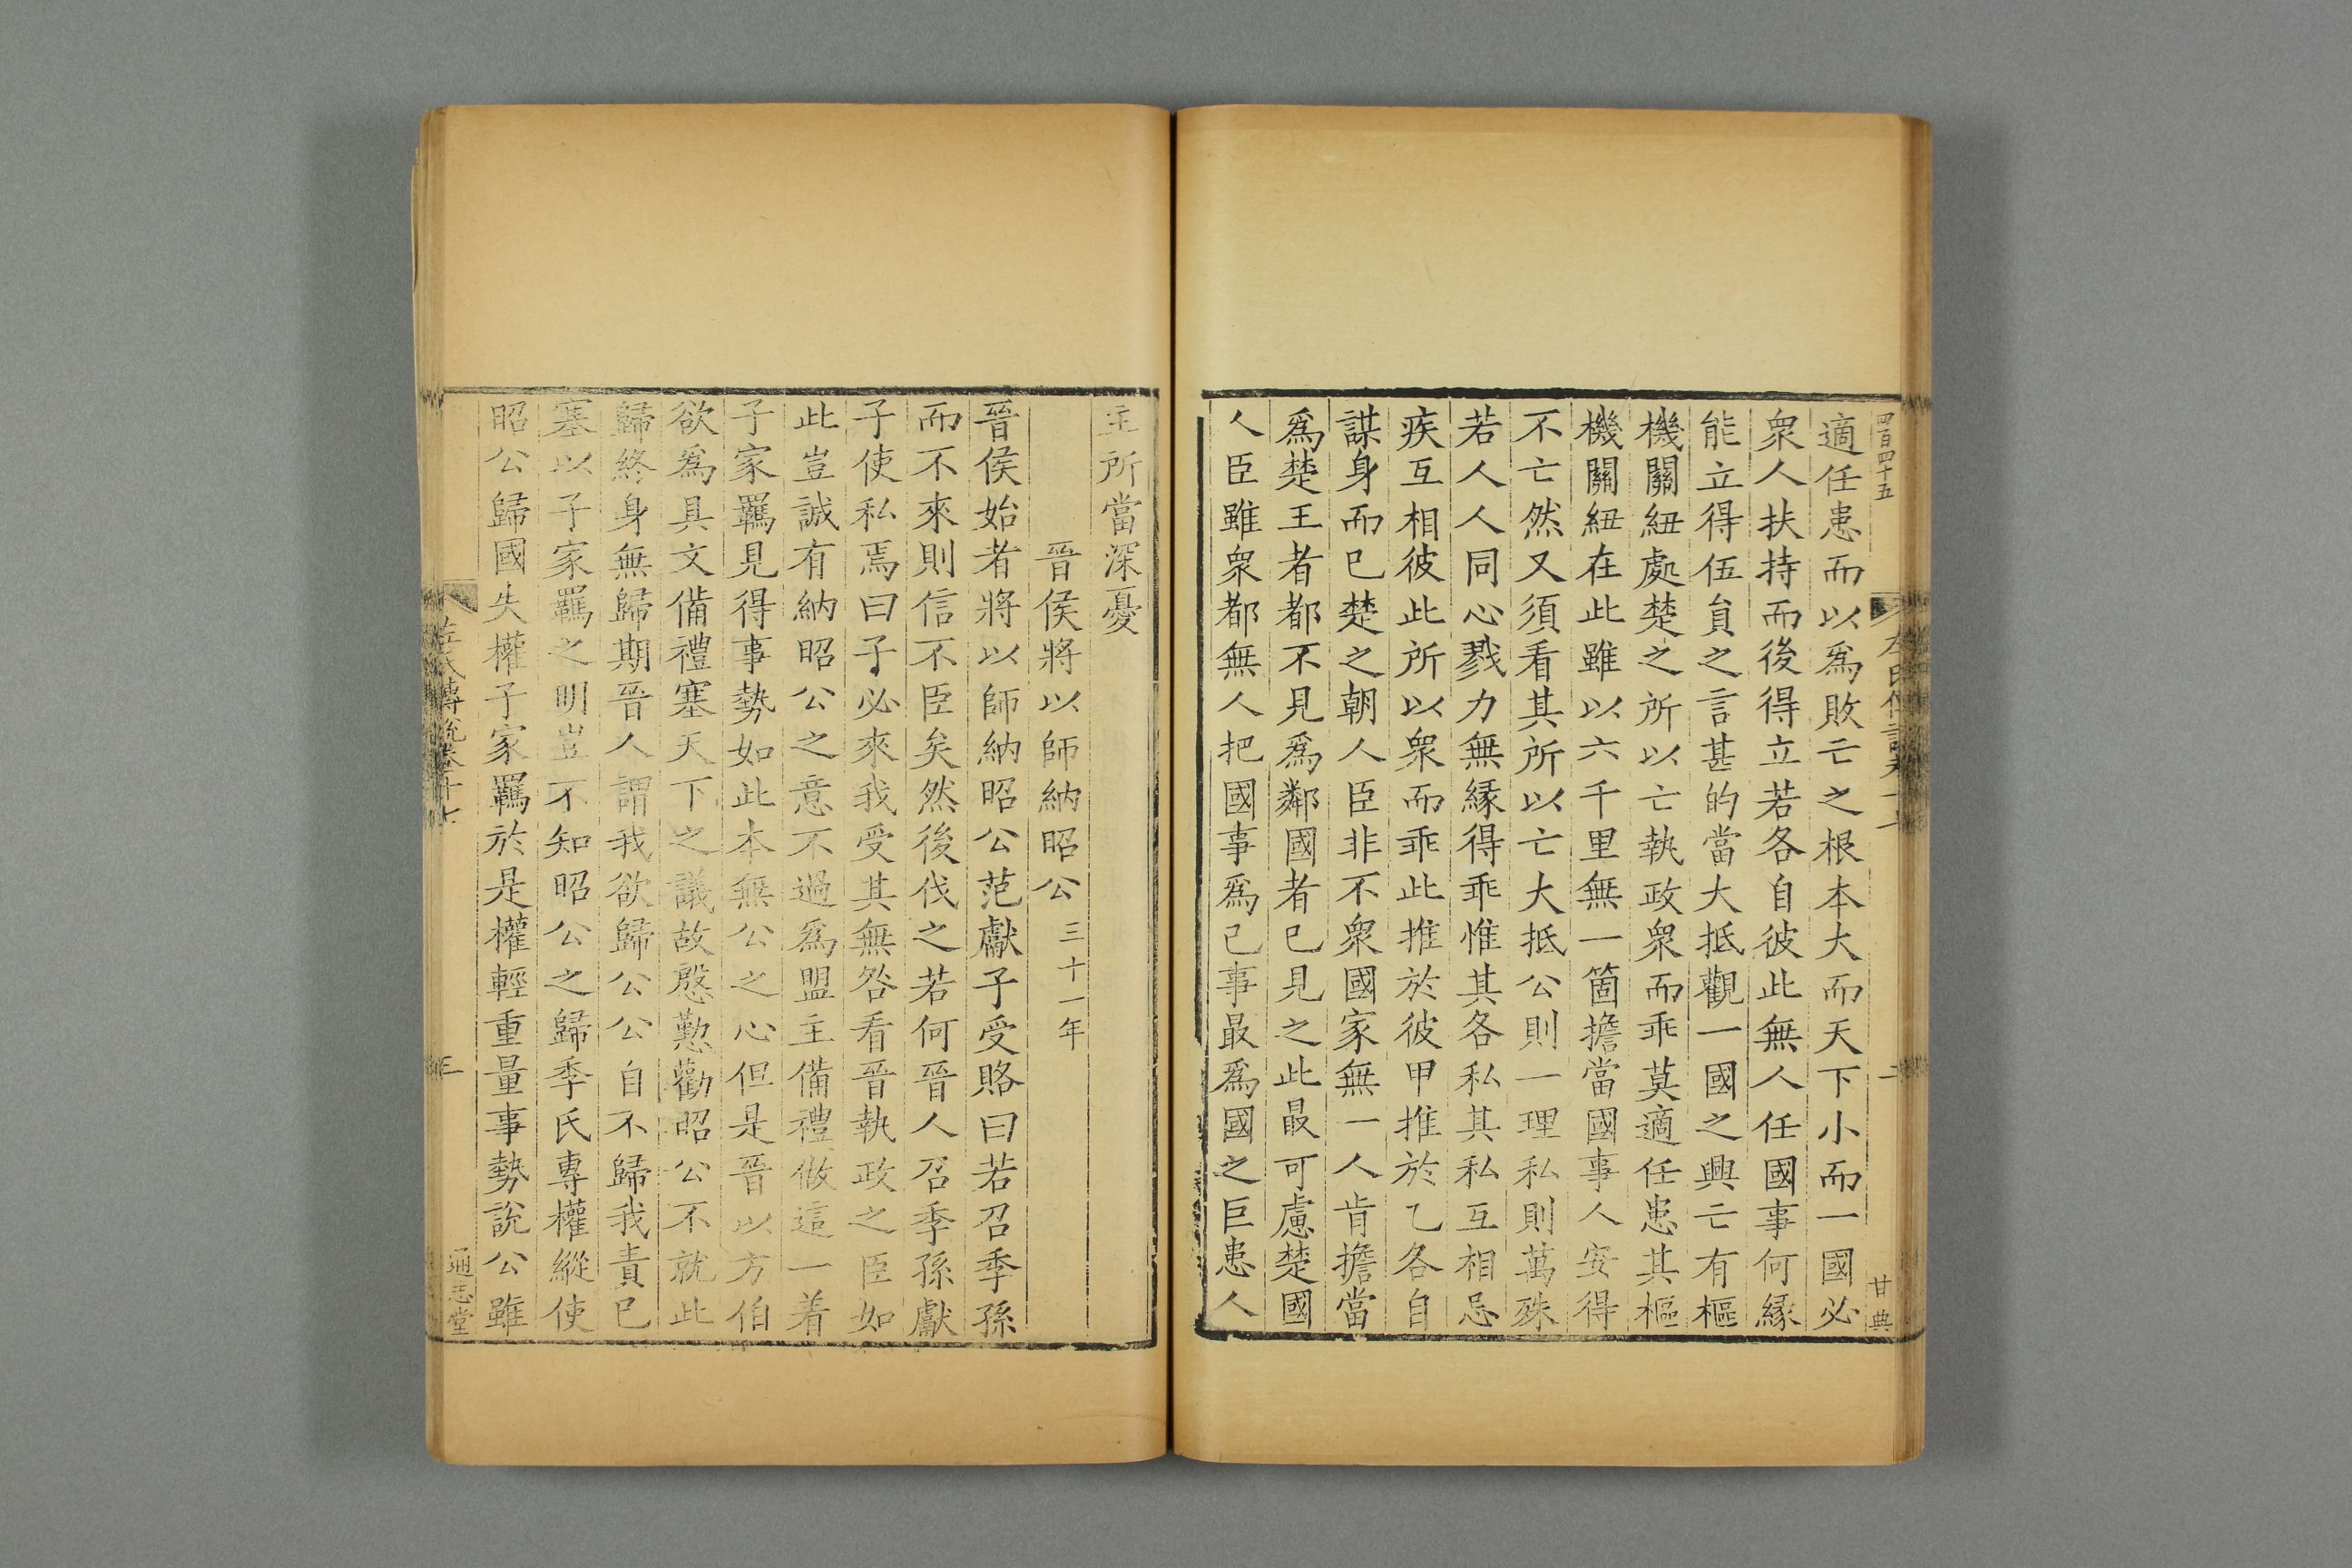 四百四十五
甘典
適任患而以爲敗亡之根本大而天下小而一國必
衆人扶持而後得立若各自彼此無人任國事何縁
能立得伍負之言甚的當大抵觀一國之興亡有樞
機關紐處楚之所以亡執政衆而乖莫適任患其樞
機關紐在此雖以六千里無一箇擔當國事人安得
不亡然又須看其所以亡大抵公則一理私則萬殊
若人人同心戮力無縁得乖惟其各私其私互相忌
疾互相彼此所以衆而乖此推於彼甲推於乙各自
謀身而已楚之朝人臣非不衆國家無一人肯擔當
爲楚王者都不見爲鄰國者已見之此最可慮楚國
人臣雖衆都無人把國事爲己事最爲國之巨患人
主所當深憂
晉侯將以師納昭公三十一年
晉侯始者將以師納昭公范獻子受賂曰若召季孫
而不來則信不臣矣然後伐之若何晉人召季孫獻
子使私焉曰子必來我受其無咎看晉執政之臣如
此豈誠有納昭公之意不過爲盟主備禮做這一着
子家羈見得事勢如此本無公之心但是晉以方伯
欲爲具文備禮塞天下之議故慇懃勸昭公不就此
歸終身無歸期晉人謂我欲歸公公自不歸我責已
塞以子家羈之明豈不知昭公之歸季氏專權縱使
昭公歸國失權子家羈於是權輕重量事勢說公雖
左氏傳說卷十七
三
通志堂